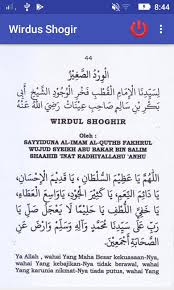 8:44
Wirdus Shogir
44
الْوِرْدُ الصَّغِيْرُ
لِسَيِّدِنَا الْإِمَامِ الْقُطْبِ فَخْرِ الْوُجُوْدِ الشَّيْخِ أَبِي
بَكْرِ بْنِ سَالِمٍ صَاحِبِ عِيْنَاتٍ رَضِيَ اللّٰهُ عَنْهُ
WIRDUL SHOGHIR
Oleh :
SAYYIDUNA AL-IMAM AL-QUTHB FAKHRUL
WUJUD SYEKH ABU BAKAR BIN SALIM
SHAAHIB 'INAT RADHIYALLAHU 'ANHU
اَللّٰهُمَّ يَا عَظِيْمَ السُّلْطَانِ، يَا قَدِيْمَ الْإِحْسَانِ،
يَا دَائِمَ النِّعَمِ، يَا كَثِيْرَ الْجُوْدِ، يَا وَاسِعَ الْعَطَاءِ،
يَا خَفِيَّ اللُّطْفِ يَا حَلِيْمًا لَا يَعْجَلُ صَلِّ يَا
رَبِّ عَلَى سَيِّدِنَا مُحَمَّدٍ وَآلِهِ وَسَلِّمْ وَارْضَ عَنِ
الصَّحَابَةِ أَجْمَعِيْنَ.
Ya Allah , wahai Yang Maha Besar kekuasaan-Nya,
wahai Yang kebajikan-Nya tidak berawal, wahai
Yang karunia nikmat-Nya tiada putus, wahai Yang